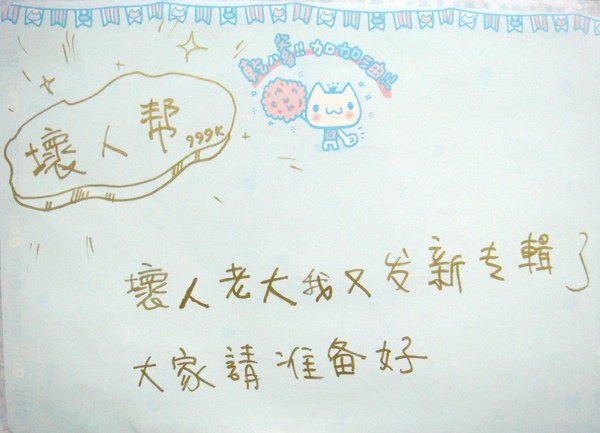 乾爹!! 加加油!!
壞人帮
999K
壞人老大我又发新专輯了
大家請准备好